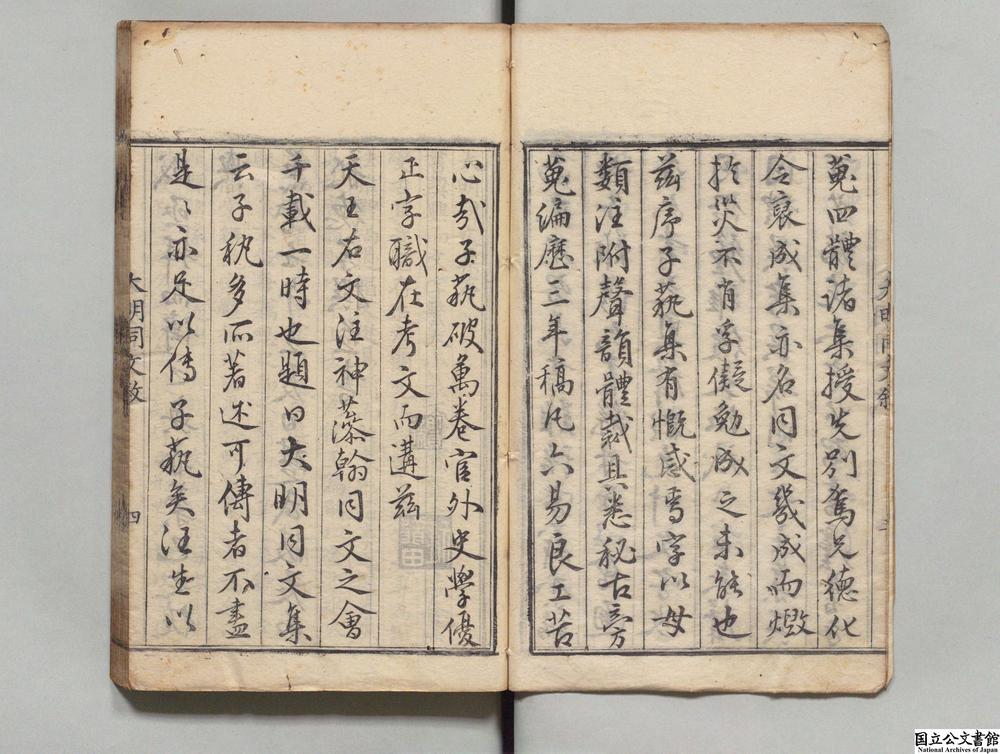 蒐四體諸集授先別駕兄德化
令裒成集亦名同文幾成而燬
於災不肖孚儗勉成之未能也
茲序子蓺集有慨感焉字以母
類注附聲韻體裁具悉秘古旁
蒐編歷三年稿凡六易良工苦
心哉子蓺破萬卷官外史學優
正字職在考文而遘茲
天王右文注神藻翰同文之會
千載一時也題曰大明同文集
云子蓺多所著述可傳者不盡
是〻亦足以傳子蓺矣汪生以
大明同文敘
四
国立公文書館
National Archives of Japan